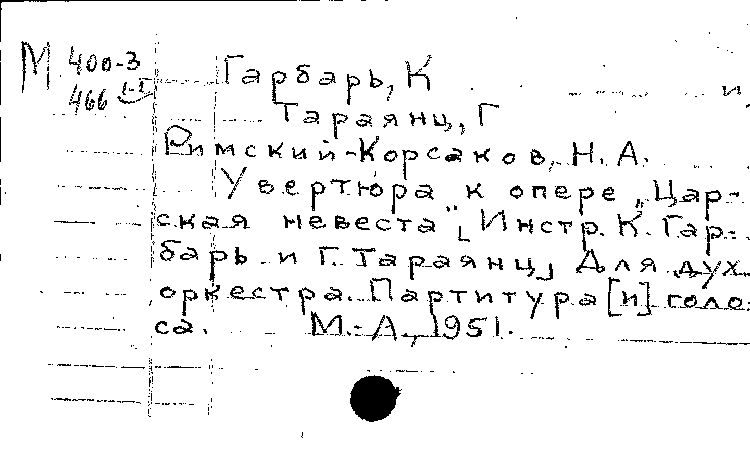 М 400-3
466 1-I
Гарбарь, К и
Тараянц, Г
Римский-Корсаков, Н. А.
Увертюра к опере „Цар-
ская невеста“ [Инстр. К. Гар-
барь и Г. Тараянц] Для дух
оркестра. Партитура [и] голо-
са. М.-Л., 1951.